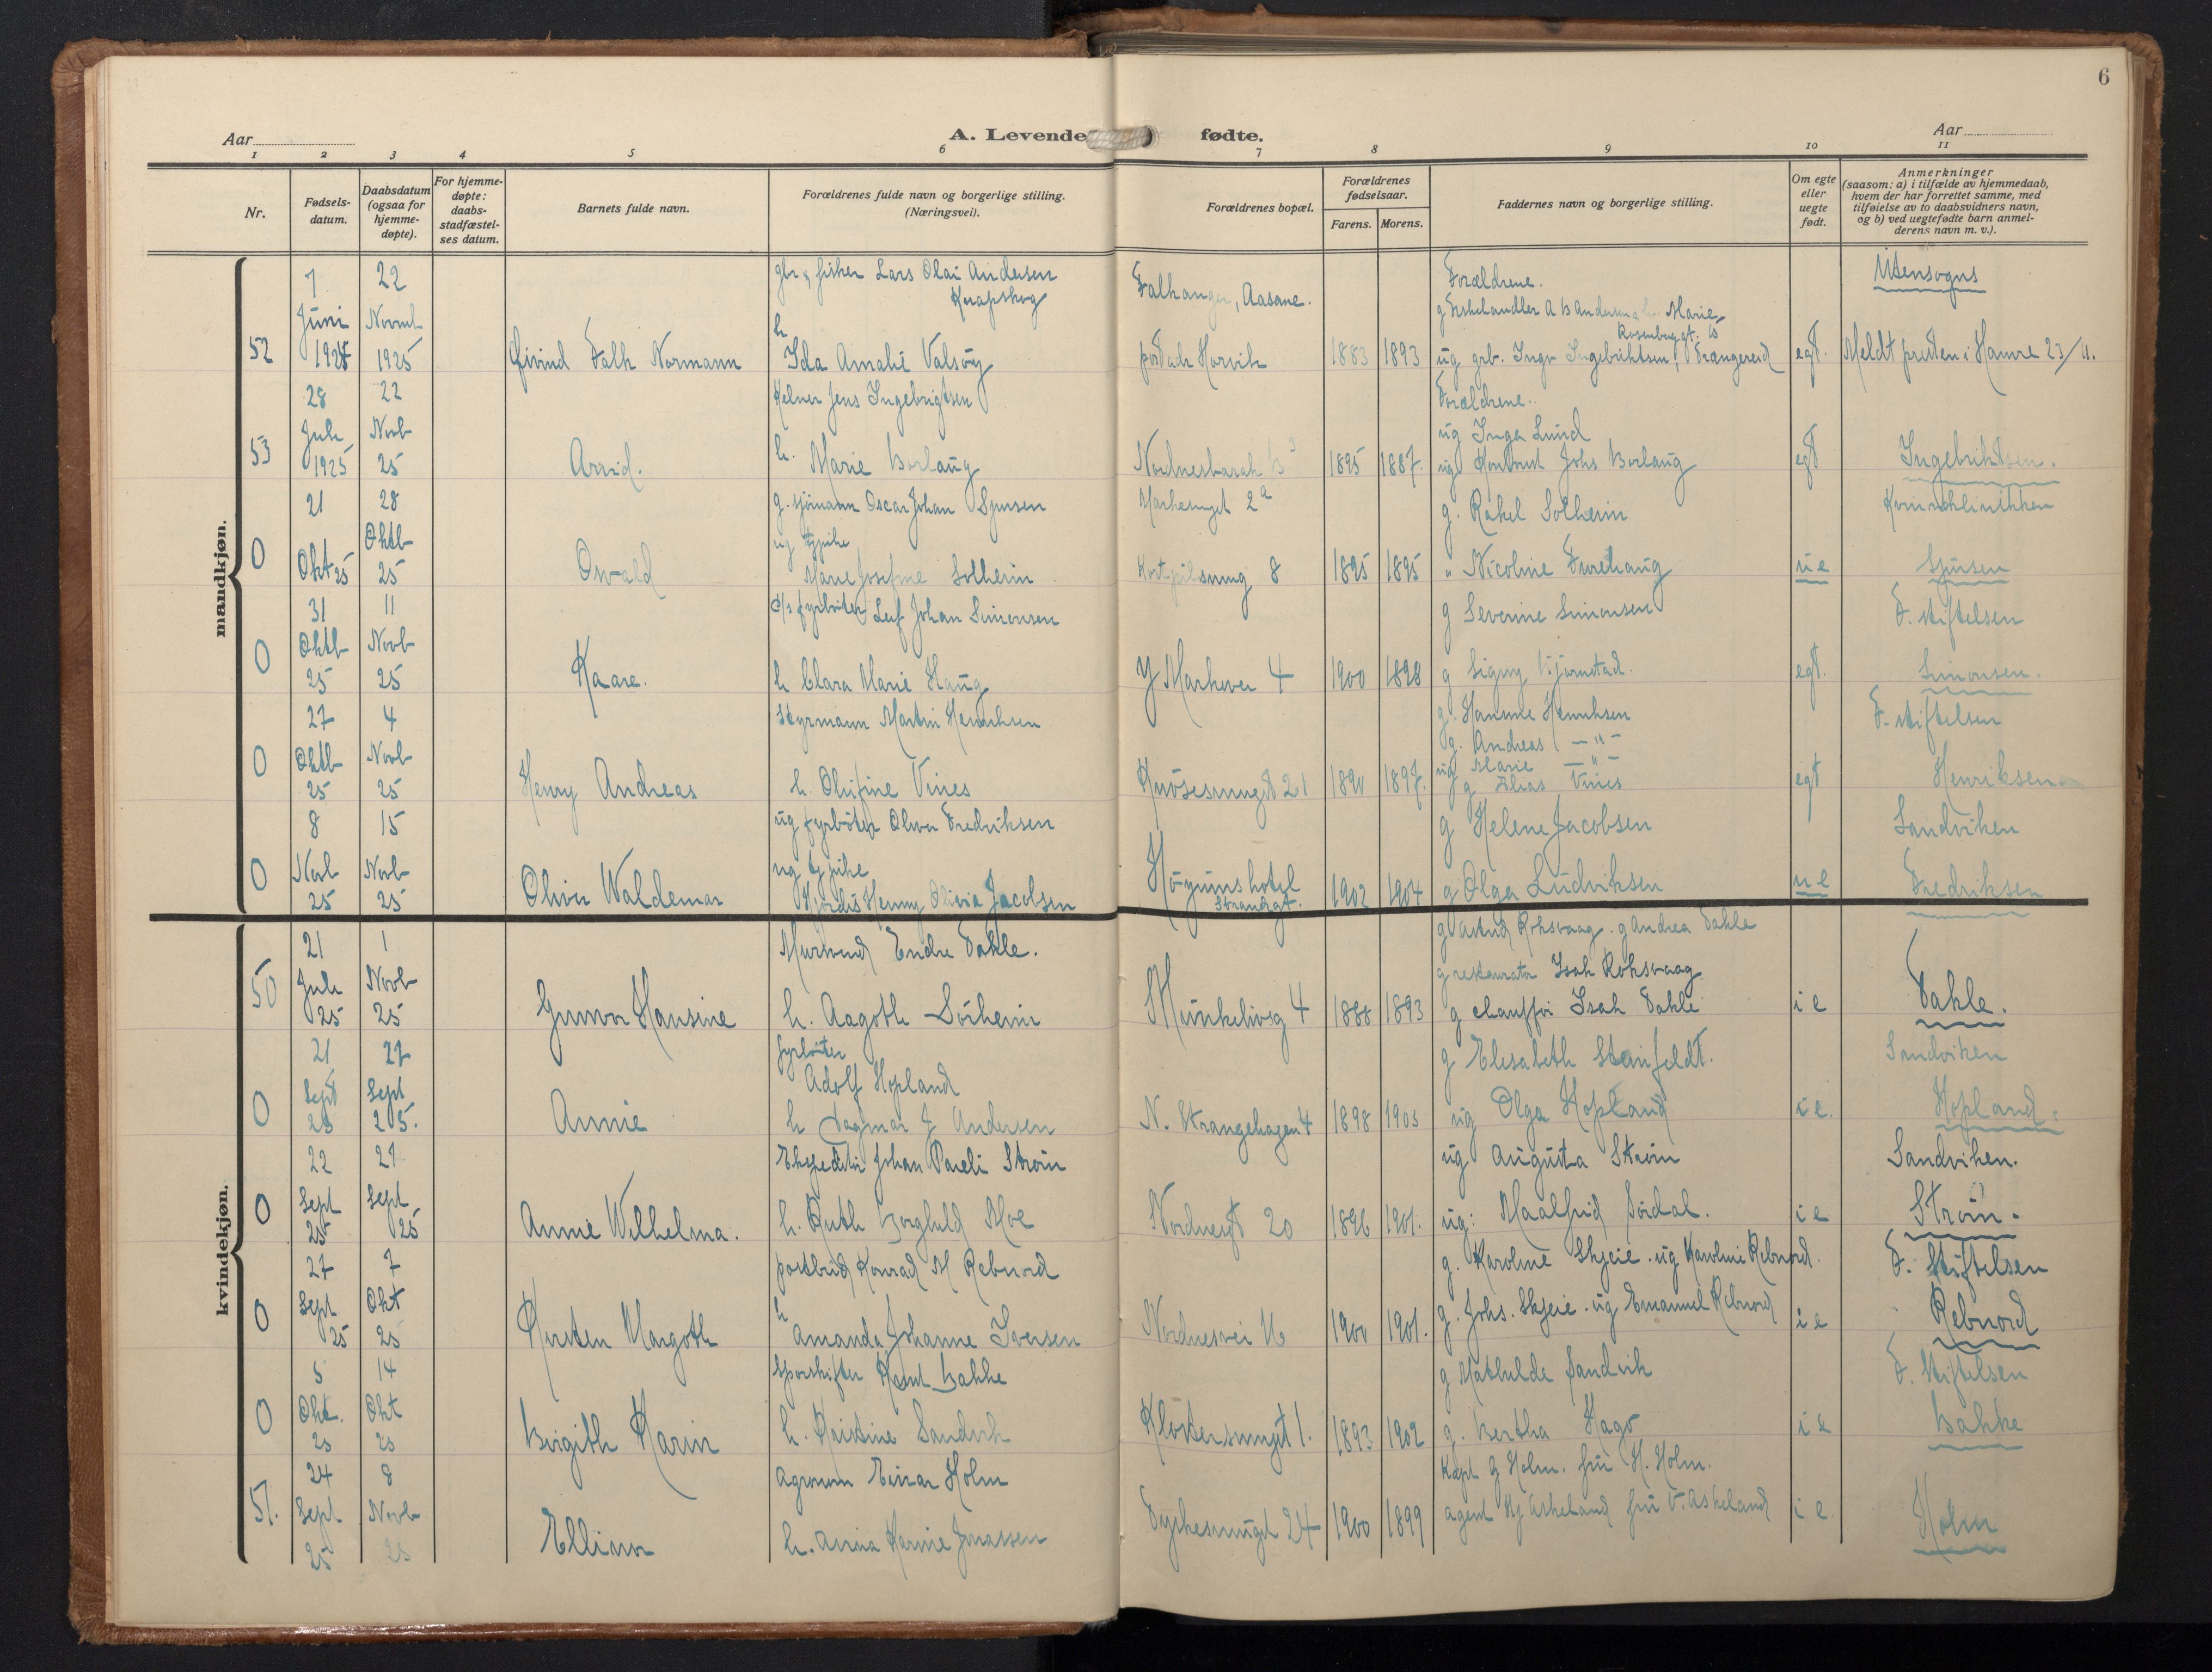 6
Aar
A. Levende fødte.
Aar
1 2 3 4 5 6 7 8 9 10 11
Nr.
Fødsels-
datum.
Daabsdatum
(ogsaa for
hjemme-
døpte).
For hjemme-
døpte:
daabs-
stadfæstel-
ses datum.
Barnets fulde navn.
Forældrenes fulde navn og borgerlige stilling.
(Næringsvei).
Forældrenes bopæl.
Forældrenes
fødselsaar.
Farens. Morens.
Faddernes navn og borgerlige stilling.
Om egte
eller
uegte
født.
Anmerkninger
(saasom: a) i tilfælde av hjemmedaab,
hvem der har forrettet samme, med
tilføielse av to daabsvidners navn,
og b) ved uegtefødte barn anmel-
derens navn m. v.).
mandkjøn.
7 22 gbr & fisker Lars Olai Andersen Forældrene. Utensogns
Knapskog Falhanger, Aasane.
Juni Novmb h g Fiskehandler A B Andersen Marie
52 1925 Øivind Falk Normann Ida Amalie Valsøy 1883 1893 ug grb. Ingv Ingebriktsen, egt. Meldt presten i Hamre 23/11.
28 22 Kelner Jens Ingebrigtsen Forældrene.
Juli Novb ug Inga Lund
53 1925 25 Arvid. h. Marie Borlaug Nordnesbarak B 1895 1887. ug Johs Borlaug egt Ingebriktsen.
21 28 g. sjømann Oscar Johan Sjursen 2a g. Rakel Solheim Kvinneklinikken
Oktb ug
0 Okt 25 25 Osvald Marie Josefine Solheim 8 1895 1895 " Nicoline ue Sjursen
31 11 fyrbøter Leif Johan Simonsen g Severine Simonsen F. stiftelsen
0 Oktb Novb
25 25 Kaare. h Clara Marie Haug Y Markevei 4 1900 1898 g Signy Bjørnstad. egt. Simonsen.
27 4 Styrmann Martin Henriksen g. Hansine Henriksen F. stiftelsen
g. Andreas — " —
0 Oktb Novb ug Marie — " —
25 25 Henry Andreas h. Olufine Vines Knøsesmuget 21 1890 1897. g Elias Vines egt Henriksen
8 15 ug fyrbøter Oliver Fredriksen g Helene Jacobsen Sandviken
0 Novb Novb ug
25 25 Oliver Waldemar Hjørdis Henny Olivia Jacobsen Høyums hotel 1902 1904 g Olga Ludviksen ue Fredriksen
Strandgt.
kvindekjøn.
21 1 Murerund Endre Dahle. g Astrid Roksvaag. g Andrea Dahle
g restauratør Isak Roksvaag
50 Juli Novb
25 25 Gunvor Hansine h. Aagoth Sørheim Munkelivsg 4 1888 1893 g chauffør Isak Dahle i e Dahle.
21 27 fyrbøter g Elisabeth Steinfeldt. Sandviken
Adolf Hopland
0 Sept Sept
25 25. Annie h Dagmar J Andersen N. Strangehagen 4 1898 1903 ug Olga Hopland i e. Hopland.
22 27 Ekspeditør Johan Pareli Strøm ug Augusta Strøm Sandviken.
0 Sept Sept
25 25 Annie Wilhelma. h. Ruth Borghild Moe Nordnesgt 20 1896 1901. ug: Maalfrid Sørdal. i e Strøm.
27 7 postbud Konrad M Rebnord g. Karoline Skjeie. ug Karoline Rebnord. F. Stiftelsen
0 Sept Okt h g. Johs. Skjeie. ug Emanuel Rebnord
25 25 Kirsten Margoth Amanda Johanne Iversen Nordnesvei 16 1900 1901. i e Rebnord
5 14 Sporskifter Knut Bakke g Mathilde Sandvik F. Stiftelsen
0 Okt. Okt
25 25 Birgith Karin h. Kristine Sandvik Klostersmuget 1. 1893 1902 g. Bertha Hagø i e Bakke
24 8 agronom Einar Holm Kapt G Holm. fru H. Holm.
51. Sept Novb agent Hj Askeland fru V. Askeland
25 25 Ellinor h. Anna Karine Jonassen Tyskesmuget 24 1900 1899 i e Holm